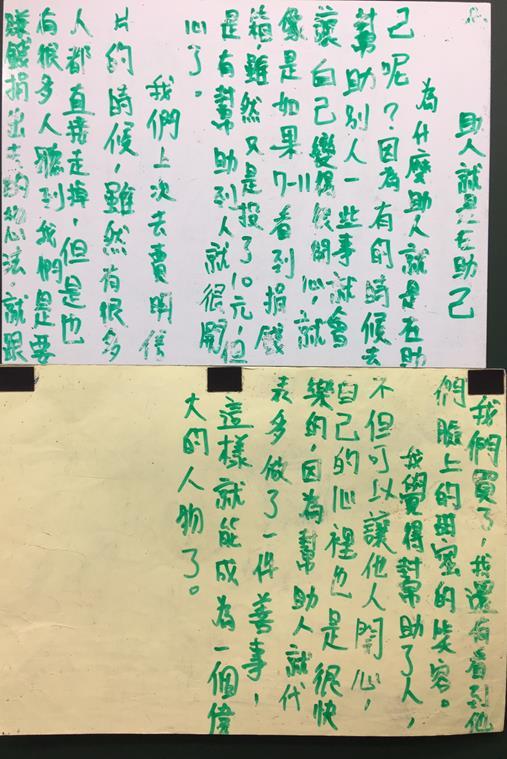 助人就是在助己
為什麼助人就是在助
己呢?因為有的時候去
幫助別人一些事就會
讓自己變得很開心,就
像是如果7-11看到捐錢
箱,雖然又是投了10元,但
是有幫助到人就很開
心了。
我們上次去賣明信
片的時候,雖然有很多
人都直接走掉,但是也
有很多人聽到我們是要
賺錢捐出去的 心法,就跟
我們買了,我還有看到他
們臉上的甜蜜的笑容。
我們覺得幫助了人,
不但可以讓他人開心,
自己的心裡也是很快
樂的,因為幫助人就代
表多做了一件善事,
這樣就能成為一個偉
大的人物了。